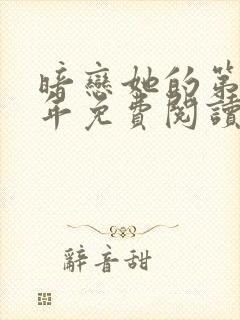 暗戀她的第
年免費閱讀
辭音甜